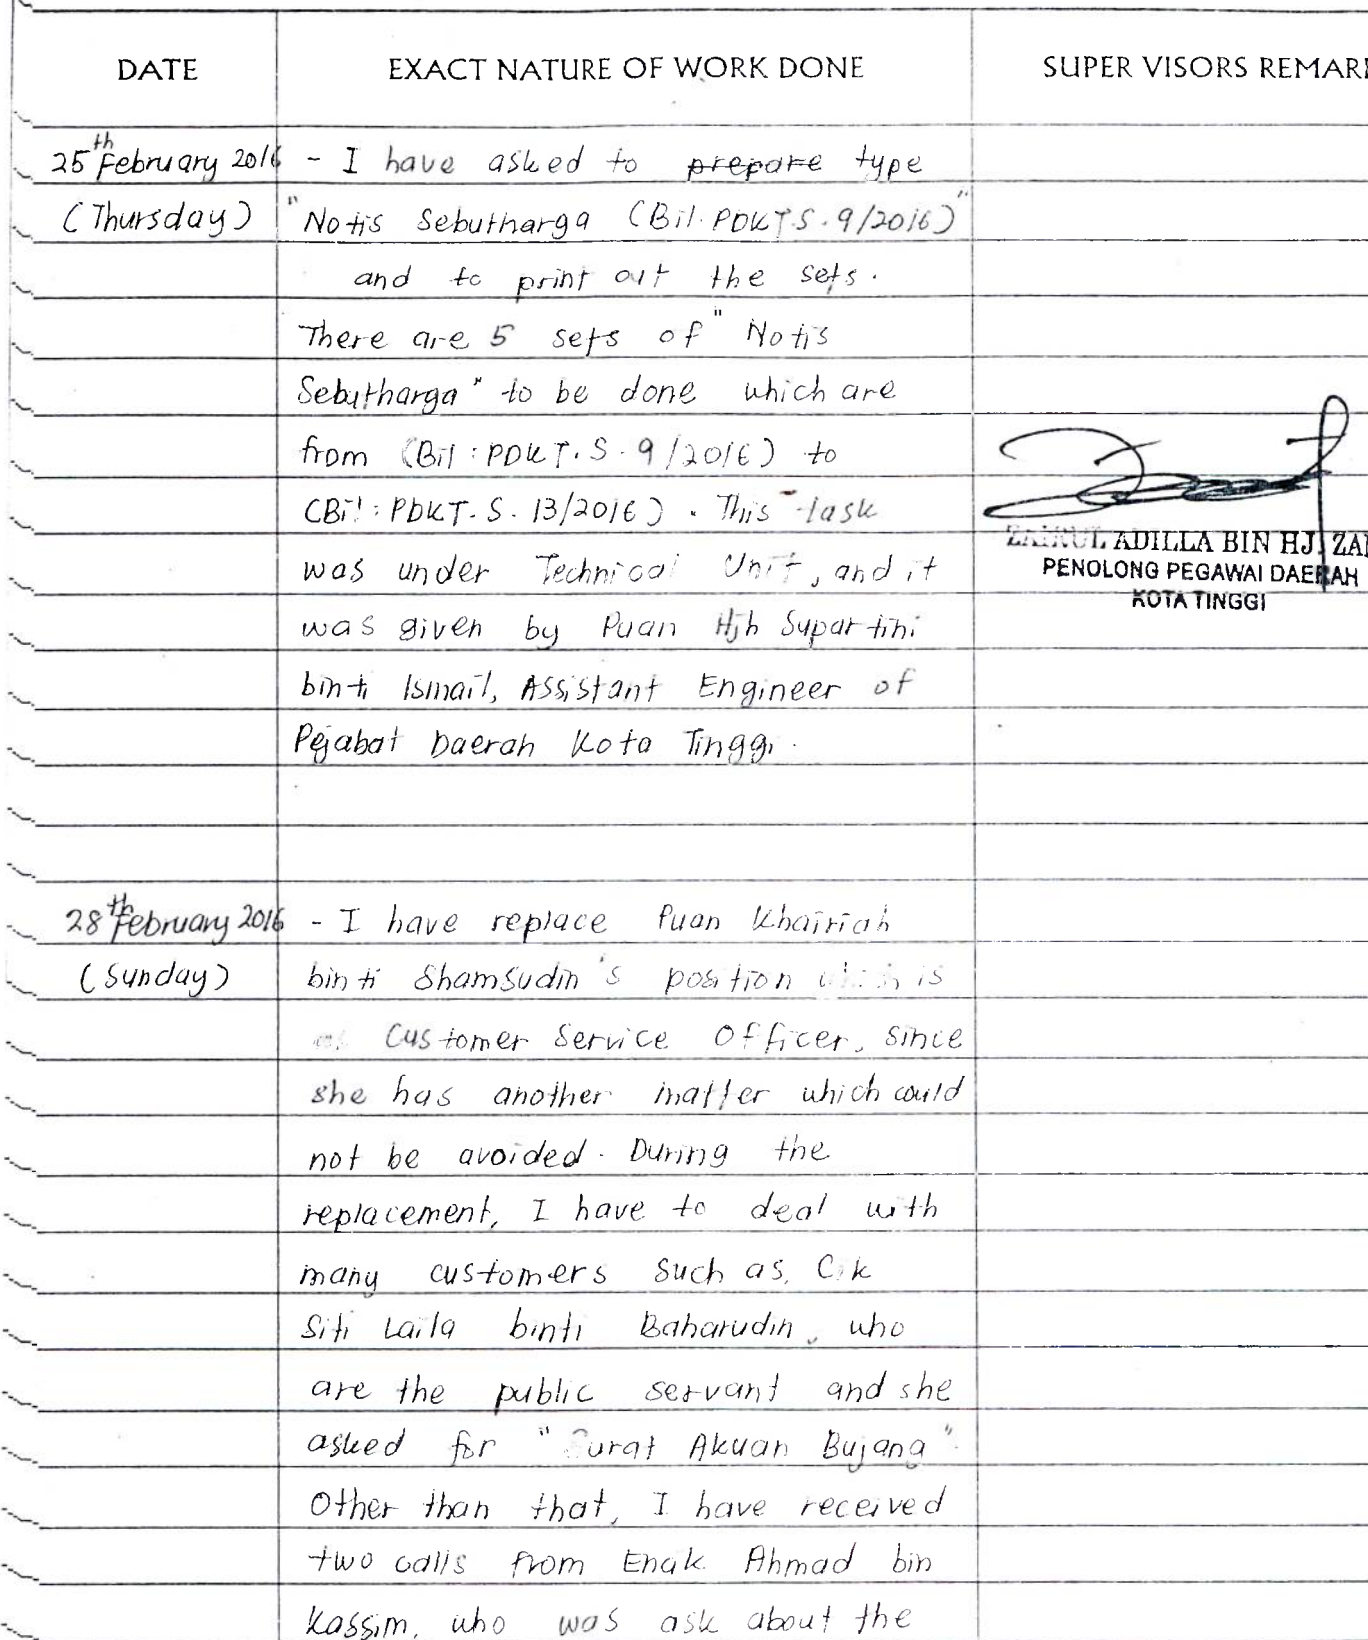 DATE EXACT NATURE OF WORK DONE SUPER VISORS REMAR
25th February 2016 - I have asked to ~~prepare~~ type
(Thursday) "Notis Sebutharga (Bil. PDKT.S.9/2016)"
and to print out the sets.
There are 5 sets of "Notis
Sebutharga" to be done which are
from (Bil: PDKT.S.9/2016) to
(Bil: PDKT.S.13/2016). This task
was under Technical Unit, and it
was given by Puan Hjh Supartini
binti Ismail, Assistant Engineer of
Pejabat Daerah Kota Tinggi.
ZAIRUL ADILLA BIN HJ ZA
PENOLONG PEGAWAI DAERAH
KOTA TINGGI
28th February 2016 - I have replace Puan Khairiah
(Sunday) binti Shamsudin's position which is
as Customer Service Officer, since
she has another matter which could
not be avoided. During the
replacement, I have to deal with
many customers such as, Cik
Siti Laila binti Baharudin, who
are the public servant and she
asked for "Surat Akuan Bujang".
Other than that, I have received
two calls from Enak Ahmad bin
Kassim, who was ask about the